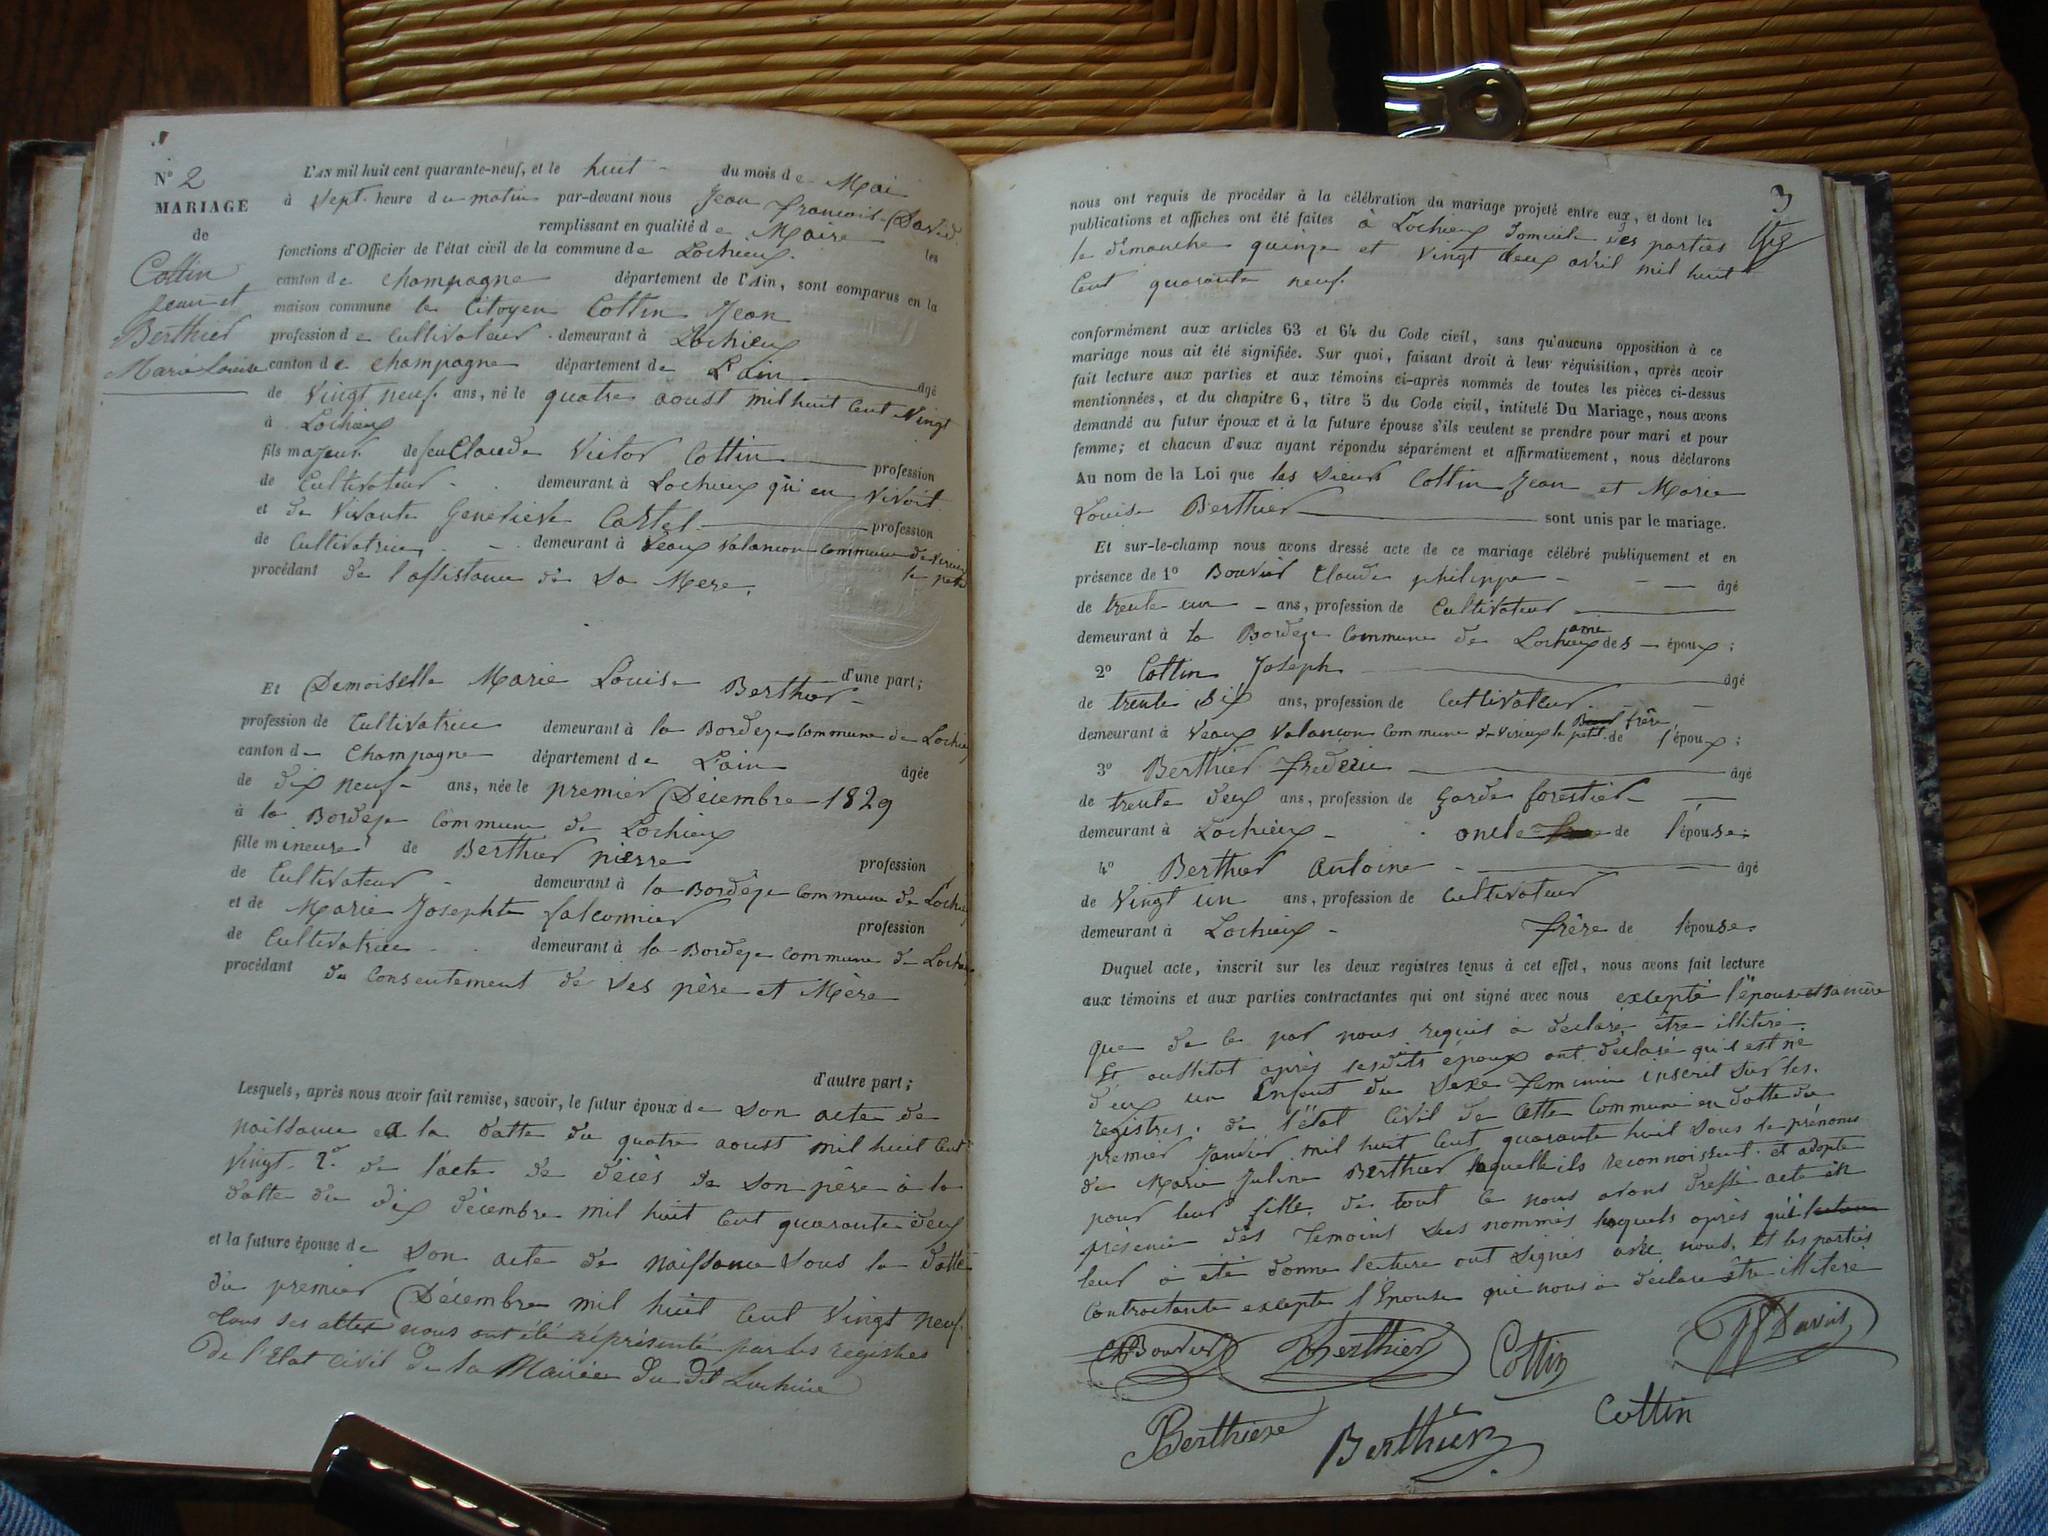 N° 2
MARIAGE
de
Cottin
Jean et
Berthier
Marie Louise
L'AN mil huit cent quarante-neuf, et le huit du mois de Mai
à sept heure du matin par-devant nous Jean François David
remplissant en qualité de Maire les
fonctions d'Officier de l'état civil de la commune de Lochieux.
canton de Champagne département de l'Ain, sont comparus en la
maison commune le Citoyen Cottin Jean
profession de Cultivateur demeurant à Lochieux
canton de Champagne département de L'ain âgé
de Vingt neuf ans, né le quatre aoust mil huit Cent Vingt
à Lochieux
fils majeur de feu Claude Victor Cottin profession
de Cultivateur demeurant à Lochieux qu'en vivoit
et de Vivante Genevieve Cartel profession
de Cultivatrice demeurant à Veaux Valancon commune de virieux
le petit
procédant de l'assistance de sa Mere.
d'une part;
Et Demoiselle Marie Louise Berthier
profession de Cultivatrice demeurant à la Bordeze Commune de Lochieu
canton de Champagne département de L'ain âgée
de dix neuf ans, née le premier Décembre 1829
à la Bordeze Commune de Lochieux
fille mineure de Berthier pierre profession
de Cultivateur demeurant à la Bordeze Commune de Lochieu
et de Marie Josephte falconnier profession
de Cultivatrice demeurant à la Bordeze Commune de Lochieu
procédant du Consentement de ses père et Mère
d'autre part;
Lesquels, après nous avoir fait remise, savoir, le futur époux de son acte de
naissance a la datte du quatre aoust mil huit Cent
Vingt 2° de l'acte de décès de son père à la
datte du dix décembre mil huit Cent quarante deux
et la future épouse de son acte de naissance sous la datte
du premier Décembre mil huit Cent Vingt neuf.
tous ses attes nous ont été réprésenté par les registres
De l'Etat Civil de la Mairie du dit Lochieu
3
nous ont requis de procéder à la célébration du mariage projeté entre eux, et dont les
publications et affiches ont été faites à Lochieux Domicile des parties
le dimanche quinze et vingt deux avril mil huit
Cent quarante neuf.
conformément aux articles 63 et 64 du Code civil, sans qu'aucune opposition à ce
mariage nous ait été signifiée. Sur quoi, faisant droit à leur réquisition, après avoir
fait lecture aux parties et aux témoins ci-après nommés de toutes les pièces ci-dessus
mentionnées, et du chapitre 6, titre 5 du Code civil, intitulé Du Mariage, nous avons
demandé au futur époux et à la future épouse s'ils veulent se prendre pour mari et pour
femme; et chacun d'eux ayant répondu séparément et affirmativement, nous déclarons
Au nom de la Loi que les sieurs Cottin Jean et Marie
Louise Berthier sont unis par le mariage.
Et sur-le-champ nous avons dressé acte de ce mariage célébré publiquement et en
présence de 1° Bouvier Claude philippe âgé
de trente un ans, profession de Cultivateur
demeurant à la Bordeze Commune de Lochieux ami des époux;
2° Cottin Joseph âgé
de trente six ans, profession de Cultivateur
demeurant à Veaux Valancon Commune de Virieux le petit frère de l'époux;
3° Berthier frederic âgé
de trente deux ans, profession de Garde forestier
demeurant à Lochieux oncle de l'épouse.
4° Berthier Antoine âgé
de Vingt un ans, profession de Cultivateur
demeurant à Lochieux frère de l'épouse.
Duquel acte, inscrit sur les deux registres tenus à cet effet, nous avons fait lecture
aux témoins et aux parties contractantes qui ont signé avec nous excepté l'épouse et sa mère
que de ce par nous requis à declaré être illitéré.
Et aussitot après lesdits époux ont déclaré qu'il est né
deux un Enfant du Sexe feminin inscrit sur les.
registres. de l'état Civil de Cette Commune en datte du
premier Janvier mil huit Cent quarante huit sous le prénoms
de Marie Juline Berthier laquelle ils reconnoissent et adopte
pour leur fille, de tout ce nous avons dressé acte en
présence des Temoins sus nommés lesquels après qu'il lecture
leur à été donne lecture ont signés avec nous. Et les parties
Contractante excepte l'Epouse qui nous à déclare être illiteré
Bouvier Berthier Cottin JF David
Berthier Berthier Cottin